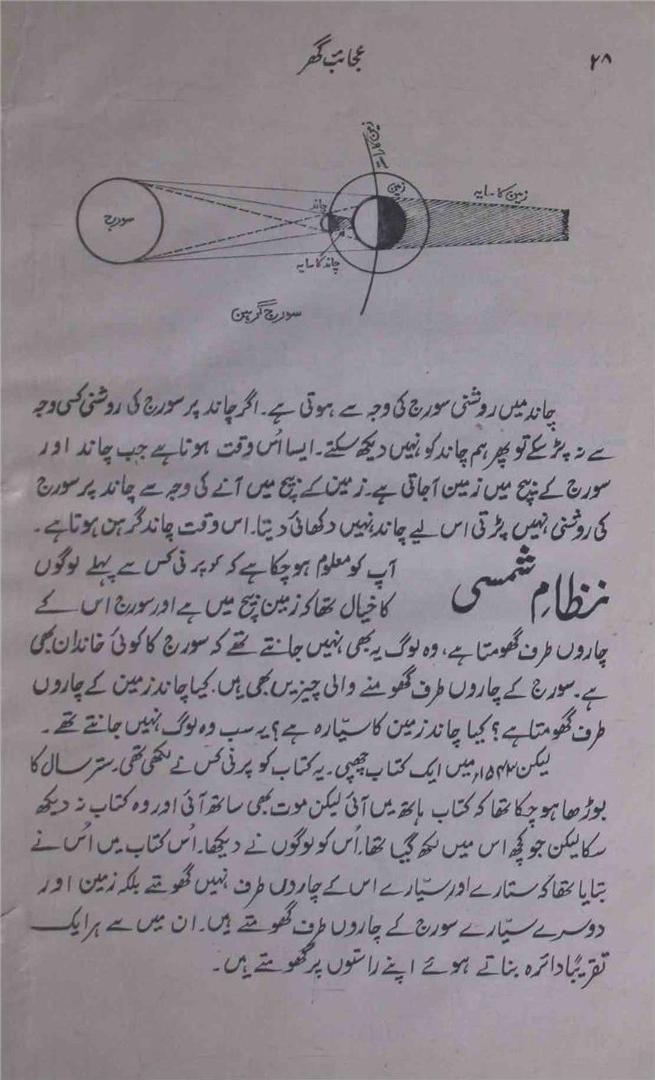 ۲۸
عجائب گھر
زمین
زمین کا سایہ
چاند
سورج
چاند کا سایہ
سورج گرہن
چاند میں روشنی سورج کی وجہ سے ہوتی ہے۔ اگر چاند پر سورج کی روشنی کسی وجہ
سے نہ پڑ سکے تو پھر ہم چاند کو نہیں دیکھ سکتے۔ ایسا اُس وقت ہوتا ہے جب چاند اور
سورج کے بیچ میں زمین آجاتی ہے۔ زمین کے بیچ میں آنے کی وجہ سے چاند پر سورج
کی روشنی نہیں پڑتی اس لیے چاند نہیں دکھائی دیتا۔ اس وقت چاند گرہن ہوتا ہے۔
نظامِ شمسی
آپ کو معلوم ہوچکا ہے کہ کوپرنی کس سے پہلے لوگوں
کا خیال تھا کہ زمین بیچ میں ہے اور سورج اس کے
چاروں طرف گھومتا ہے، وہ لوگ یہ بھی نہیں جانتے تھے کہ سورج کا کوئی خاندان بھی
ہے۔ سورج کے چاروں طرف گھومنے والی چیزیں بھی ہیں۔ کیا چاند زمین کے چاروں
طرف گھومتا ہے؟ کیا چاند زمین کا سیّارہ ہے؟ یہ سب وہ لوگ نہیں جانتے تھے۔
لیکن ۱۵۴۳ء میں ایک کتاب چھپی۔ یہ کتاب کوپرنی کس نے لکھی تھی۔ ستر سال کا
بوڑھا ہوچکا تھا کہ کتاب ہاتھ میں آئی لیکن موت بھی ساتھ آئی اور وہ کتاب نہ دیکھ
سکا لیکن جو کچھ اس میں لکھ گیا تھا۔ اُس کو لوگوں نے دیکھا۔ اُس کتاب میں اُس نے
بتایا تھا کہ ستارے اور سیّارے اس کے چاروں طرف نہیں گھومتے بلکہ زمین اور
دوسرے سیّارے سورج کے چاروں طرف گھومتے ہیں۔ ان میں سے ہر ایک
تقریبًا دائرہ بناتے ہوئے اپنے راستوں پر گھومتے ہیں۔